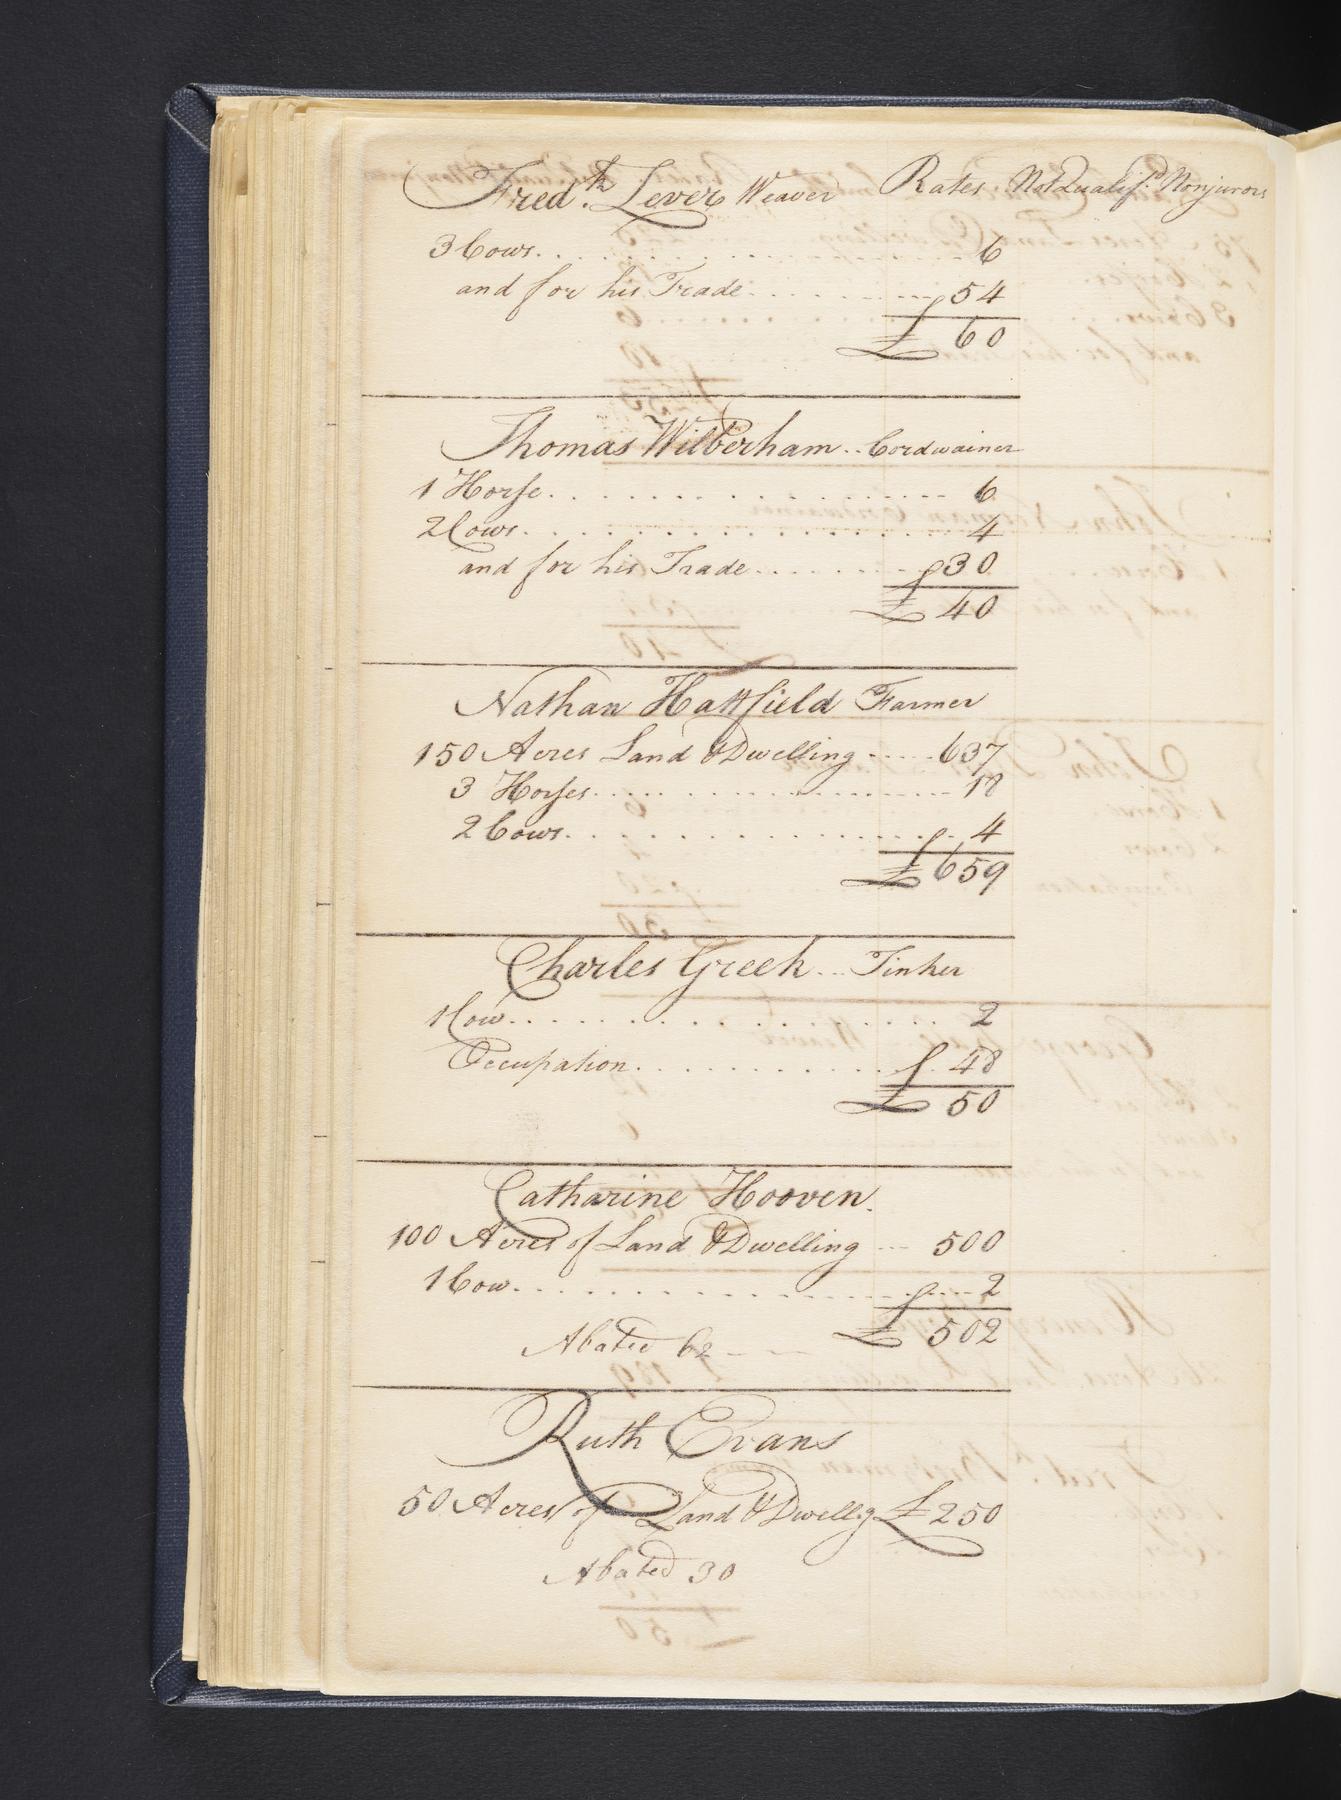 Fred.k Lever Weaver Rates Not Qualif.d Nonjurors
3 Cows 6
and for his Trade 54
£ 60
Thomas Wilberham Cordwainer
1 Horse 6
2 Cows 4
and for his Trade 30
£ 40
Nathan Hattfield Farmer
150 Acres Land & Dwelling 637
3 Horses 18
2 Cows 4
£ 659
Charles Greek Tinker
1 Cow 2
Occupation 48
£ 50
Catharine Hooven.
100 Acres of Land & Dwelling 500
1 Cow 2
£ 502
Abated 62
Ruth Evans
50 Acres of Land & Dwellg £ 250
Abated 30